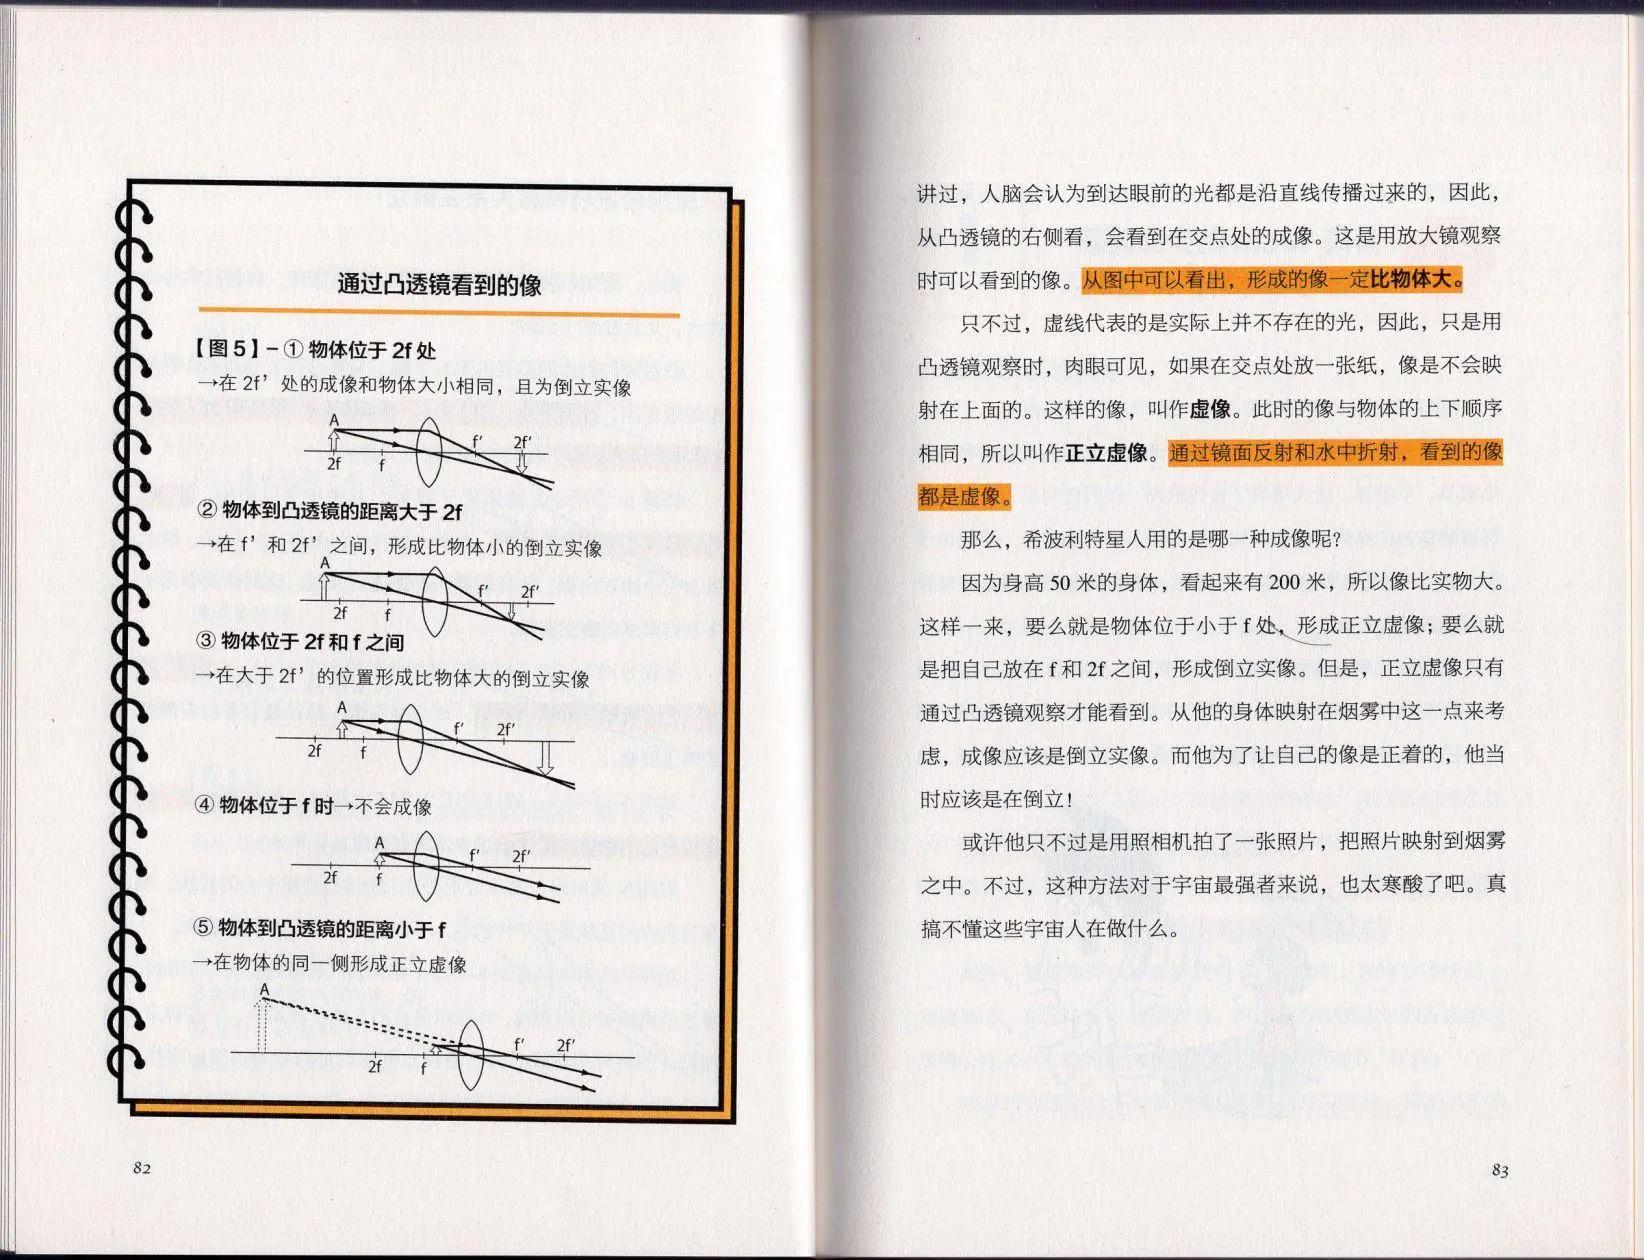 通过凸透镜看到的像
【图5】-① 物体位于 2f 处
→在 2f’处的成像和物体大小相同，且为倒立实像
A
f′ 2f′
2f f
② 物体到凸透镜的距离大于 2f
→在 f’和 2f’之间，形成比物体小的倒立实像
A
f′ 2f′
2f f
③ 物体位于 2f 和 f 之间
→在大于 2f’的位置形成比物体大的倒立实像
A
f′ 2f′
2f f
④ 物体位于 f 时→不会成像
A
f′ 2f′
2f f
⑤ 物体到凸透镜的距离小于 f
→在物体的同一侧形成正立虚像
A
f′ 2f′
2f f
82
讲过，人脑会认为到达眼前的光都是沿直线传播过来的，因此，
从凸透镜的右侧看，会看到在交点处的成像。这是用放大镜观察
时可以看到的像。从图中可以看出，形成的像一定比物体大。
只不过，虚线代表的是实际上并不存在的光，因此，只是用
凸透镜观察时，肉眼可见，如果在交点处放一张纸，像是不会映
射在上面的。这样的像，叫作虚像。此时的像与物体的上下顺序
相同，所以叫作正立虚像。通过镜面反射和水中折射，看到的像
都是虚像。
那么，希波利特星人用的是哪一种成像呢？
因为身高 50 米的身体，看起来有 200 米，所以像比实物大。
这样一来，要么就是物体位于小于 f 处，形成正立虚像；要么就
是把自己放在 f 和 2f 之间，形成倒立实像。但是，正立虚像只有
通过凸透镜观察才能看到。从他的身体映射在烟雾中这一点来考
虑，成像应该是倒立实像。而他为了让自己的像是正着的，他当
时应该是在倒立！
或许他只不过是用照相机拍了一张照片，把照片映射到烟雾
之中。不过，这种方法对于宇宙最强者来说，也太寒酸了吧。真
搞不懂这些宇宙人在做什么。
83